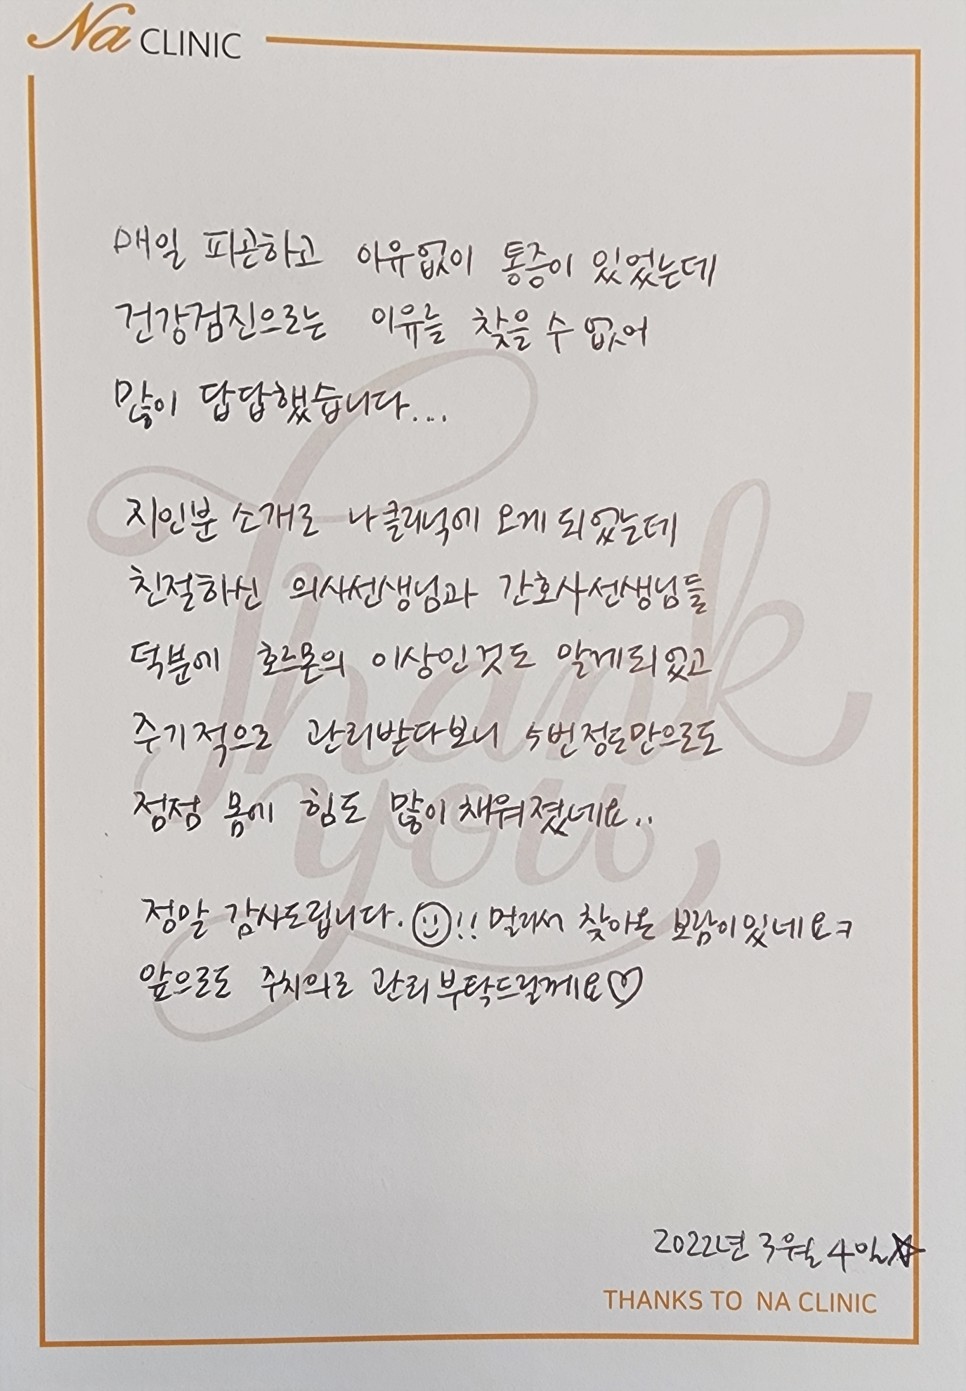 Na CLINIC
매일 피곤하고 아유없이 통증이 있었는데
건강검진으로는 이유를 찾을 수 없어
많이 답답했습니다...
지인분 소개로 나클리닉에 오게 되었는데
친절하신 의사선생님과 간호사선생님들
덕분에 호르몬의 이상인것도 알게되었고
주기적으로 관리받다보니 5번정도만으로도
점점 몸에 힘도 많이 채워졌네요..
정말 감사드립니다.☺!! 멀리서 찾아온 보람이있네요ㅋ
앞으로도 주치의로 관리부탁드릴께요♡
Thank you
2022년 3월 4일☆
THANKS TO NA CLINIC